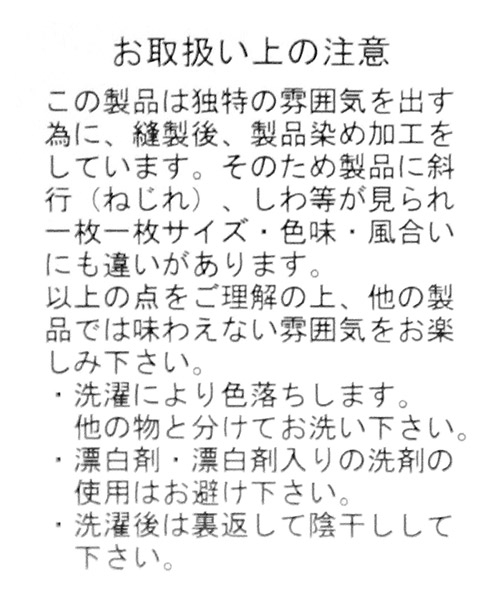 お取扱い上の注意
この製品は独特の雰囲気を出す
為に、縫製後、製品染め加工を
しています。そのため製品に斜
行（ねじれ）、しわ等が見られ
一枚一枚サイズ・色味・風合い
にも違いがあります。
以上の点をご理解の上、他の製
品では味わえない雰囲気をお楽
しみ下さい。
・洗濯により色落ちします。
他の物と分けてお洗い下さい。
・漂白剤・漂白剤入りの洗剤の
使用はお避け下さい。
・洗濯後は裏返して陰干しして
下さい。